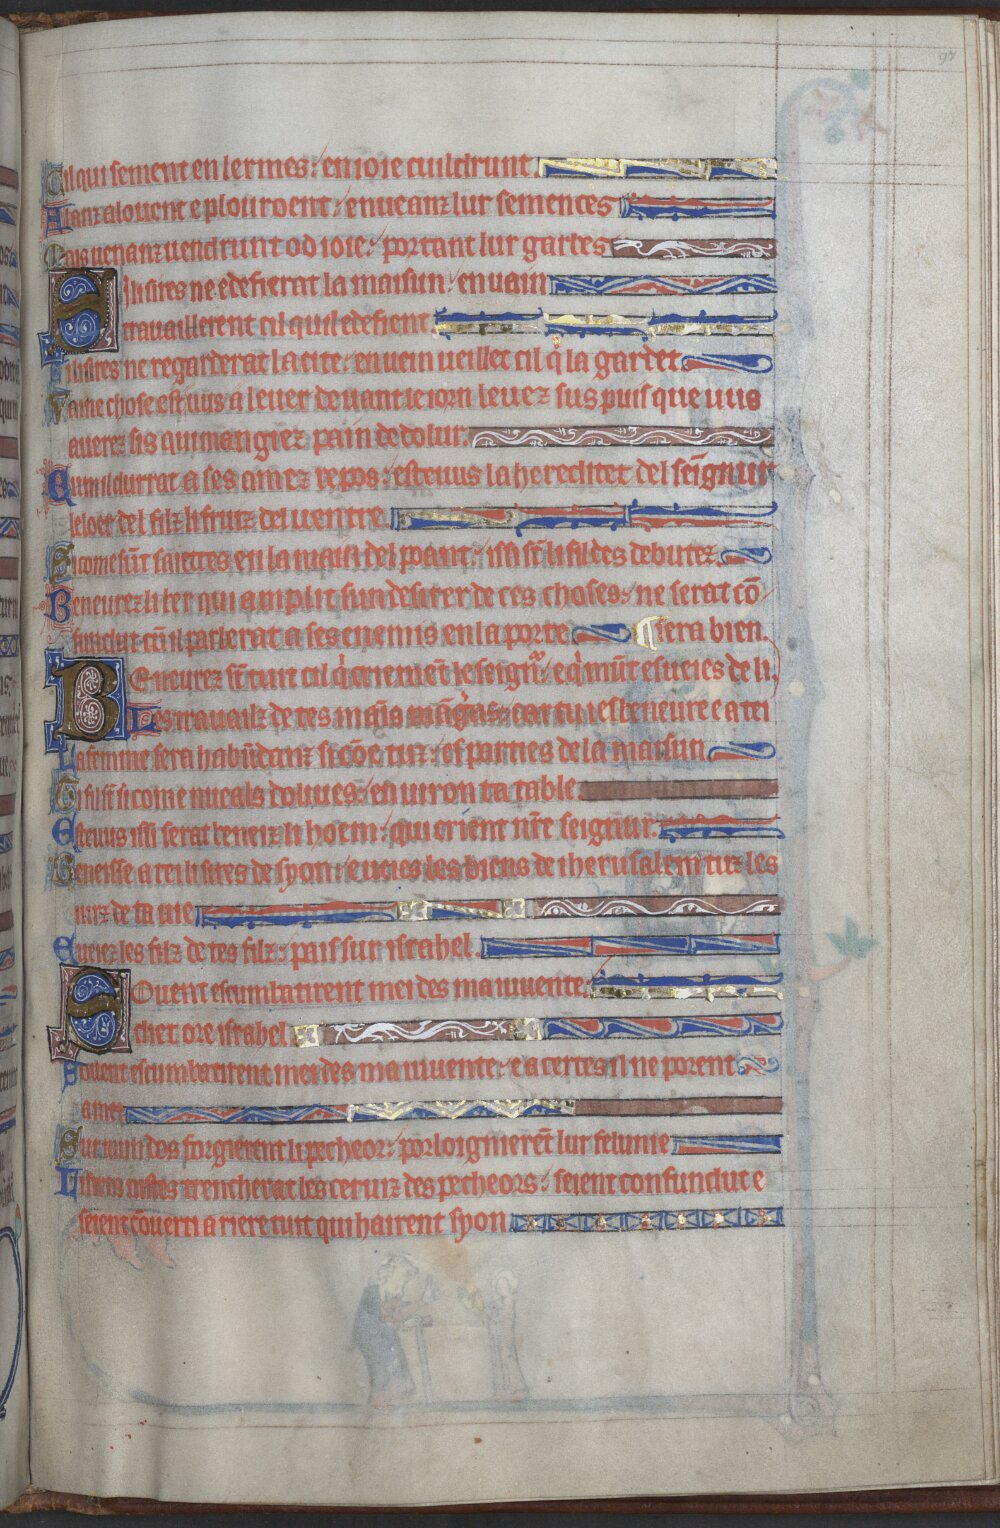 Cil qui sement en lermes: en ioie cuildrunt
Alanz alouent e plouroent: enueanz lur semences
Mais uenanz uendrunt od ioie: portant lur garbes
SI li sires ne edefierat la maisun: en uain
trauaillerent cil qui l edefient
li sires ne regarderat la cite: en uein ueillet cil q̇ la gardet
Vaine chose est uus a leuer deuant le iorn leuez sus puis que uus
auerez sis qui mangiez pain de dolur.
Cum il durrat a ses amez repos: esteuus la hereditet del seignur
le loer del filz li fruiz del uentre.
Sicome sūt saiettes en la main del poant: issi sūt li fil des debutez
Beneurez li ber qui aimplit sun desirer de ces choses: ne serat cō
fundut cū il parlerat a ses enemis en la porte ¶ iera bien.
BEneurez sūt tuit cil q̇ criement le seignr: e q̇ unt es ueies de li.
Les trauailz de tes mains mangas: car tu ies beneure e a tei
La femme sera habundanz sicōe uiz: es parties de la maisun
Ti fil sūt sicome nueals doliues: en uiron ta table
Esteuus issi serat beneiz li hoem: qui crient nr̄e seignur.
Beneisse a tei li sires de syon: e ueies les biens de iherusalem tuz les
iurz de ta uie
E ueiez les filz de tes filz: pais sur israhel.
SOuent escumbatirent mei des ma iuuente:
diet ore israhel
Souent escumbatirent mei des ma iuuente: e a certes il ne porent
a mei
Sur mun dos forgierent li pecheor: porloignierēt lur felunie
Li sires iustes trencherat les ceruiz des pecheors: seient confundut e
seient cōuerti ariere tuit qui hairent syon